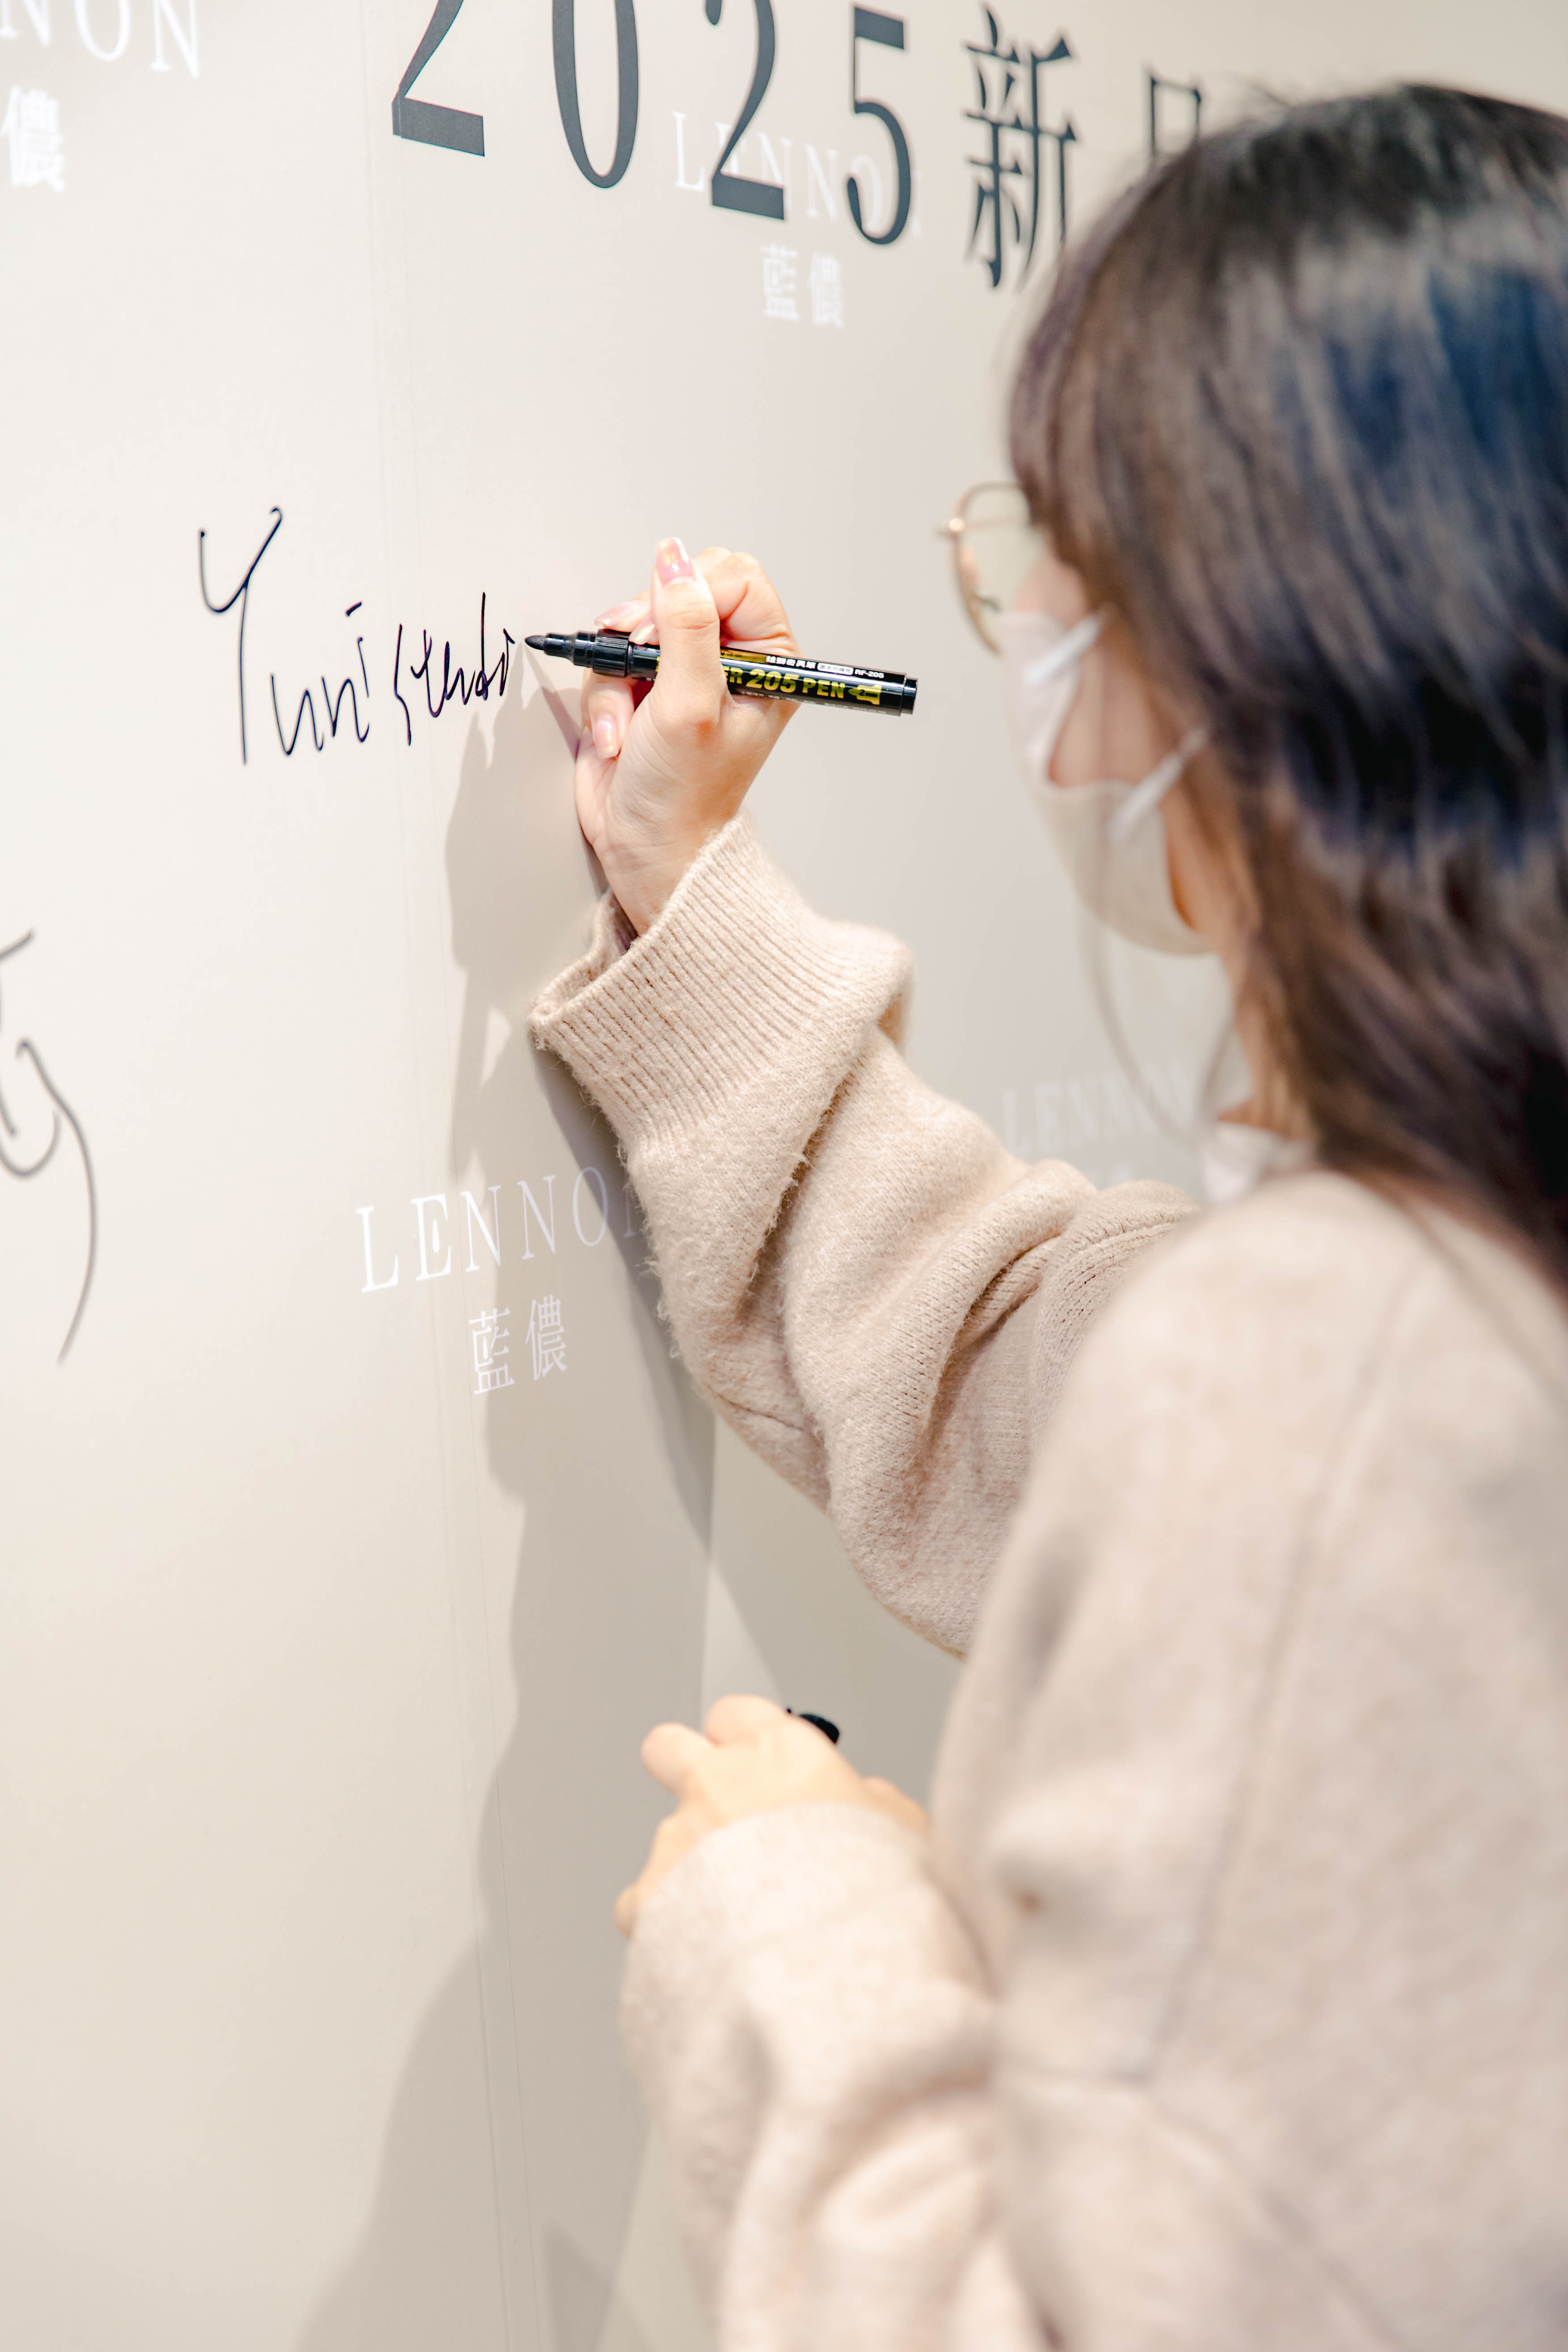 NNON
儂
2025新品
LENNON
藍儂
Yuni studi
205 PEN
RF-205
LENNON
LENNON
藍儂